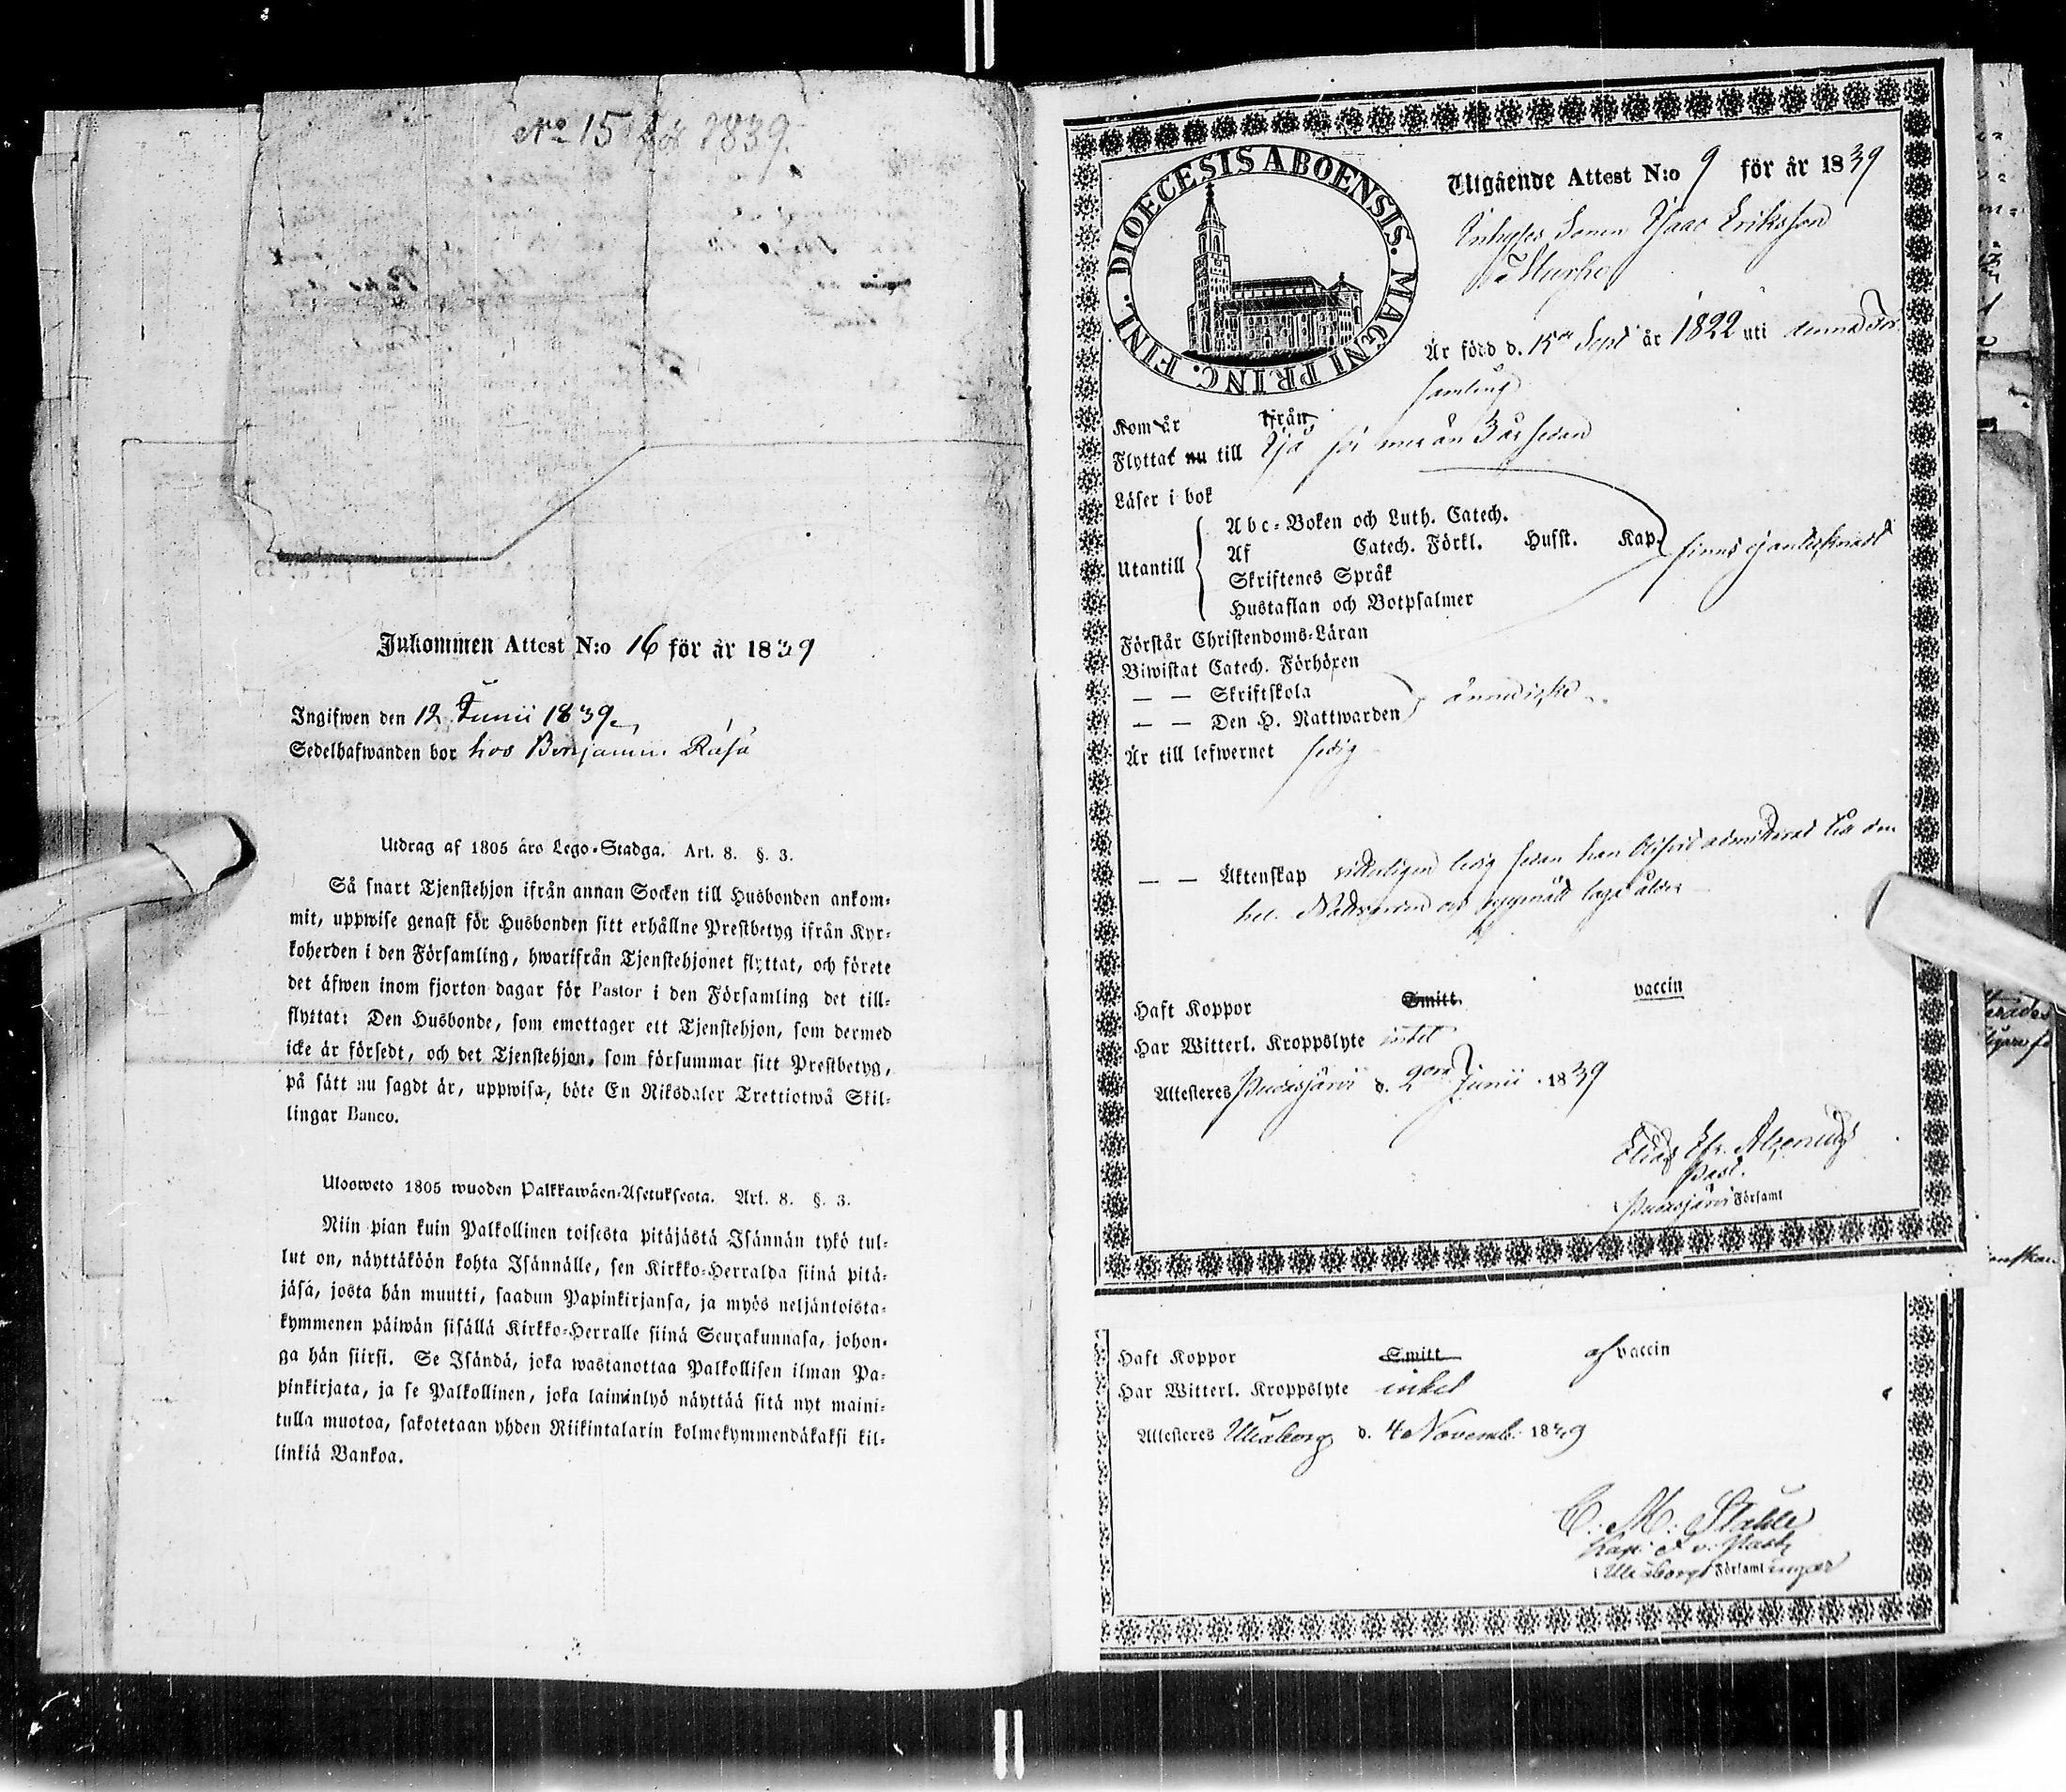 No 15 för 1839.
Inkommen Attest N:o 16 för år 1839
Ingifwen den 12 Junii 1839
Sedelhafwanden bor hos Benjamin Räsä
Utdrag af 1805 års Lego-Stadga. Art. 8. §. 3.
Så snart Tjenstehjon ifrån annan Socken till Husbonden ankom-
mit, uppwise genast för Husbonden sitt erhållne Prestbetyg ifrån Kyr-
koherden i den Församling, hwarifrån Tjenstehjonet flyttat, och förete
det äfwen inom fjorton dagar för Pastor i den Församling det till-
flyttat: Den Husbonde, som emottager ett Tjenstehjon, som dermed
icke är försedt, och det Tjenstehjon, som försummar sitt Prestbetyg,
på sätt nu sagdt är, uppwisa, böte En Riksdaler Trettiotwå Skil-
lingar Banco.
Ulosweto 1805 wuoden Palkkawäen-Asetuksesta. Art. 8. §. 3.
Niin pian kuin Palkollinen toisesta pitäjästä Isännän tykö tul-
lut on, näyttäköön kohta Isännälle, sen Kirkko-Herralda siinä pitä-
jäsä, josta hän muutti, saadun Papinkirjansa, ja myös neljäntoista-
kymmenen päiwän sisällä Kirkko-Herralle siinä Seurakunnasa, johon-
ga hän siirsi. Se Isändä, joka wastanottaa Palkollisen ilman Pa-
pinkirjata, ja se Palkollinen, joka laiminlyö näyttää sitä nyt maini-
tulla muotoa, sakotetaan yhden Riikintalarin kolmekymmendäkaksi kil-
linkiä Bankoa.
DIOECESIS ABOENSIS. MAGNI PRINC. FINL.
Utgående Attest N:o 9 för år 1839
Inhyses Sonen Isaac Eriksson
Är född d. 15de Sept år 1822 uti denna För
samling
Kom år ifrån
Flyttat nu till Ijo för mer än 3 år sedan
Läser i bok
Abc-Boken och Luth. Catech.
Utantill Af Catech. Förkl. Husst. Kap. finns ej antecknadt
Skriftenes Språk
Hustaflan och Botpsalmer
Förstår Christendoms-Läran
Biwistat Catech. Förhören
— — Skriftskola
— — Den H. Nattwarden
Är till lefwernet sedig
— — Äktenskap vitterligen ledig sedan han blifvit admitterad till den
hel. Nattvarden och uppnått laga ålder
Haft Koppor Smitt vaccin
Har Witterl. Kroppslyte intet
Attesteres Pudasjärvi d. 2dra Junii 1839
Elias Efr. Alcenius
Past.
i Pudasjärvi Församl
Haft Koppor Smitt af vaccin
Har Witterl. Kroppslyte intet
Attesteres Uleåborg d. 4 Novemb. 1839
C. M. Ståhle
Kap. o. v. Past.
i Uleåborgs Församlingar